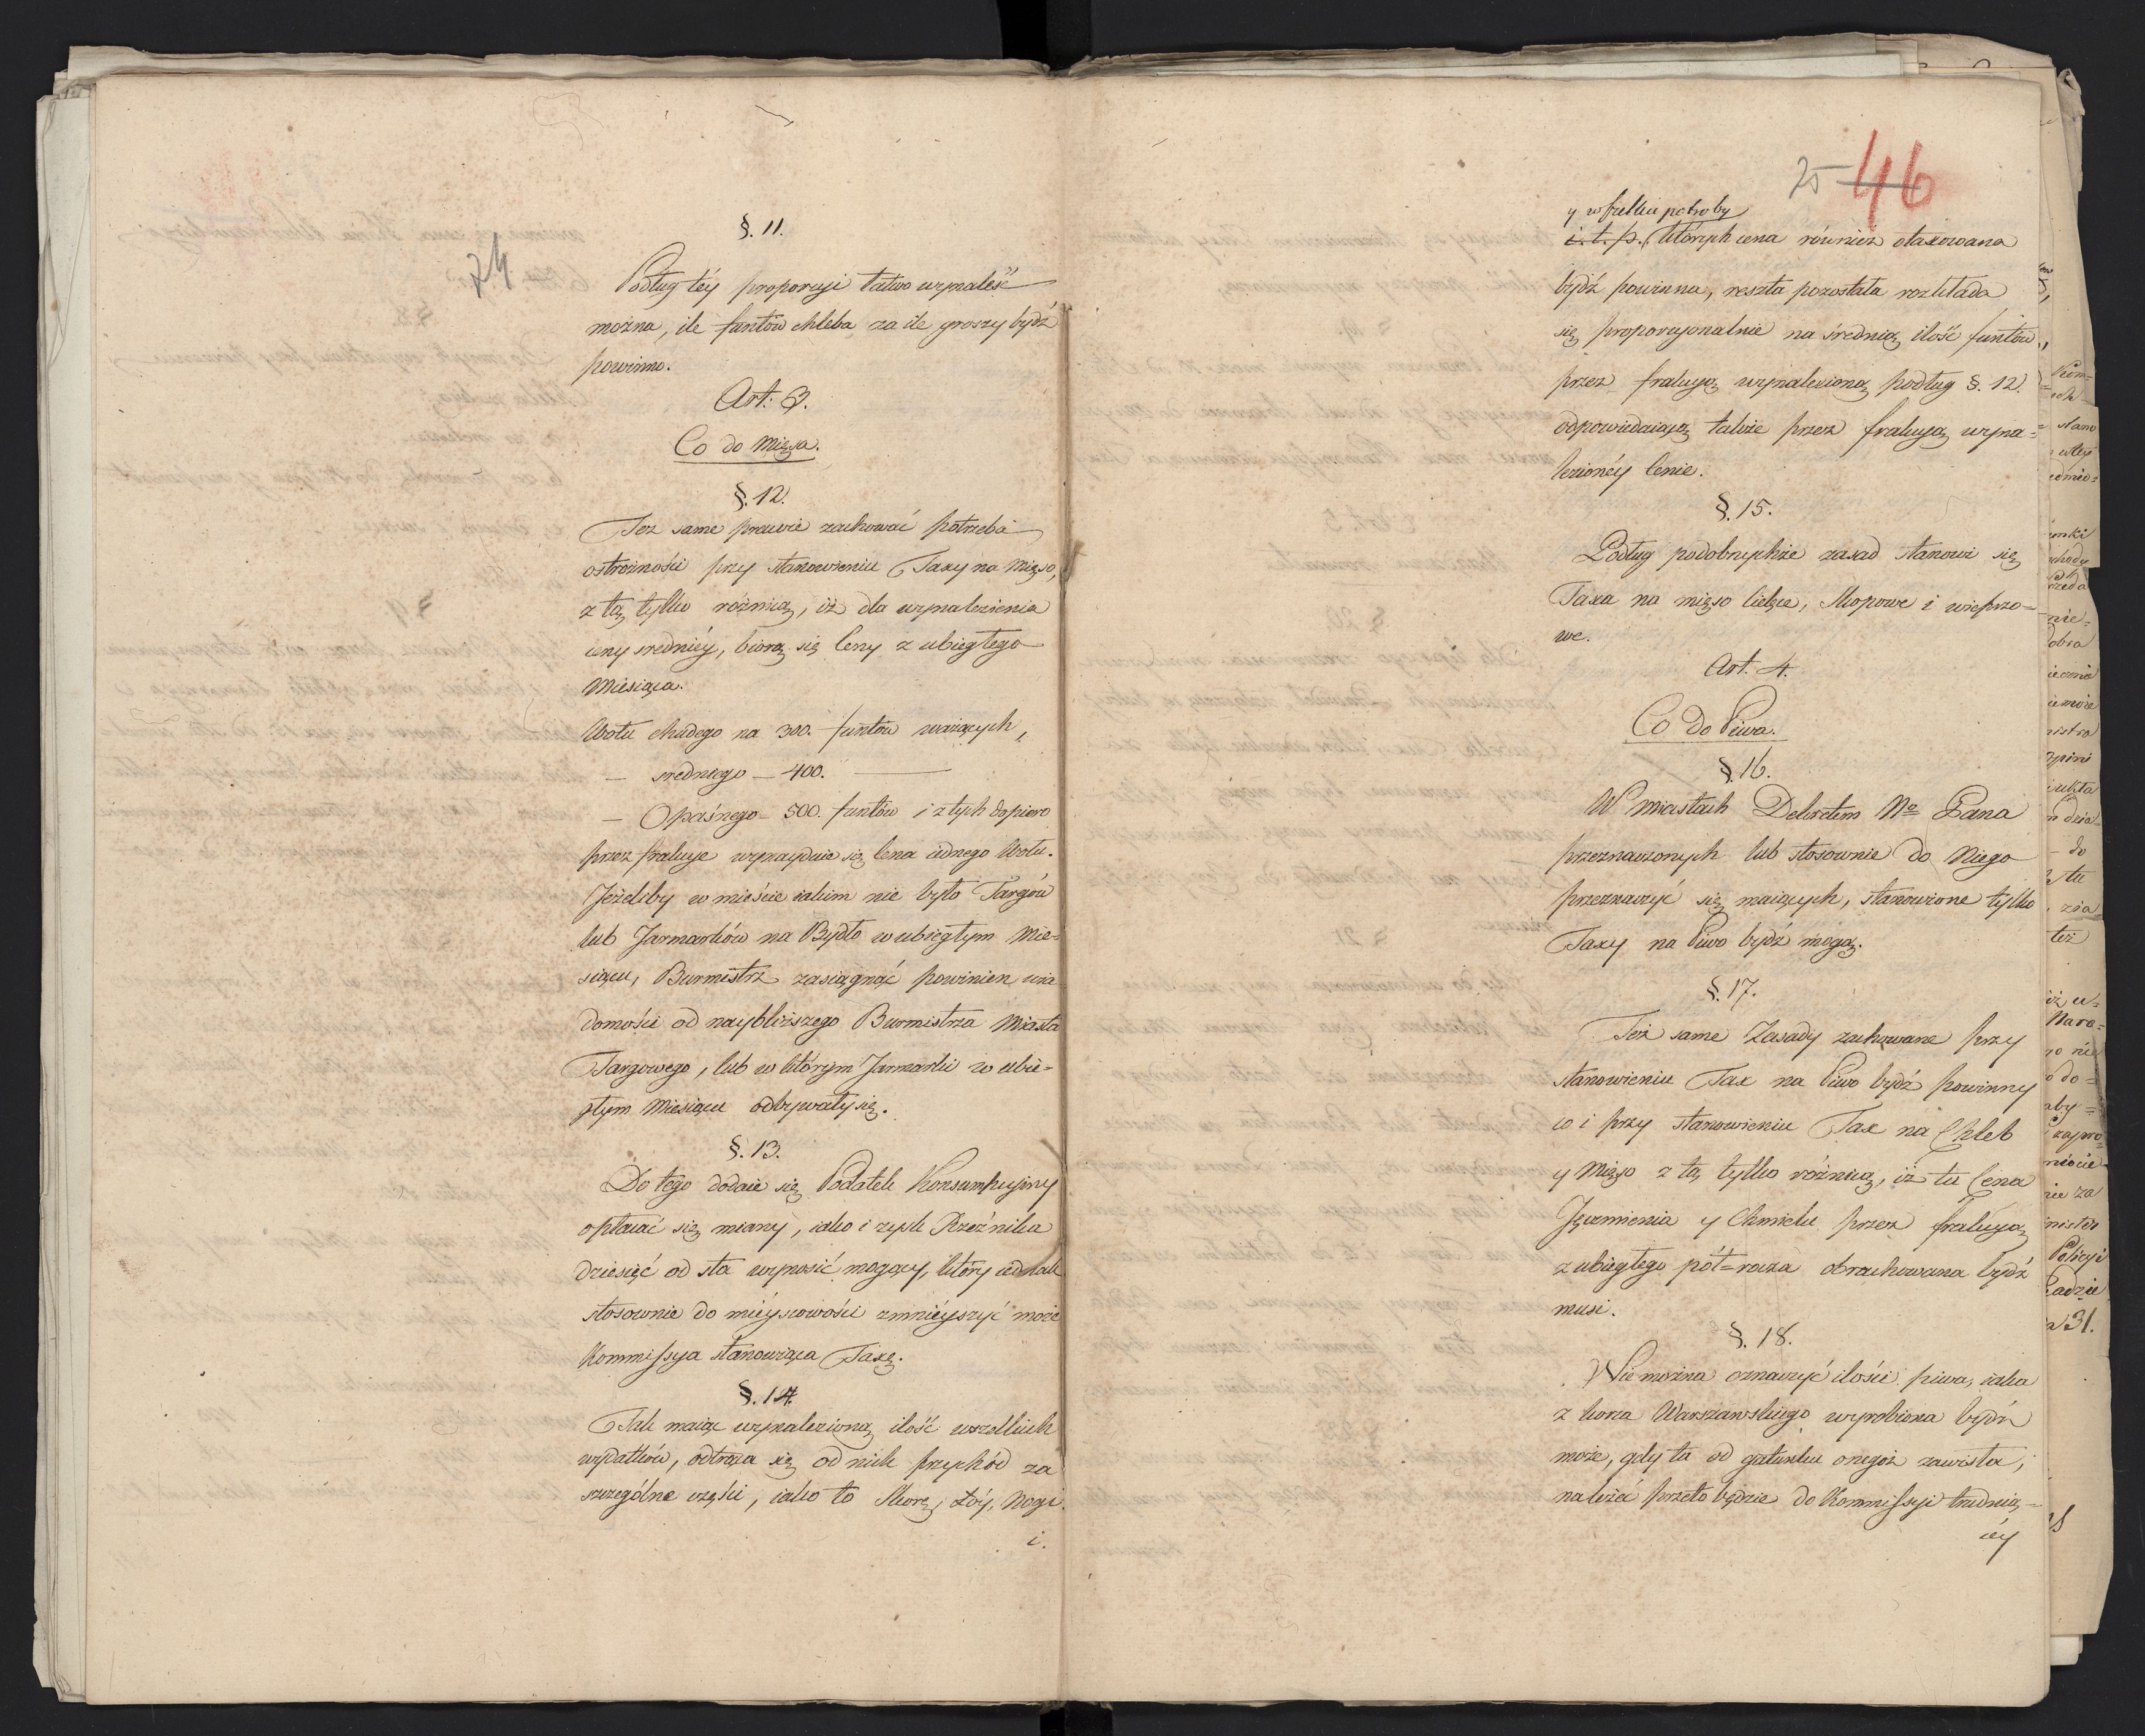 24
§. 11.
Podług téy proporcyi łatwo wynaleść
można, ile funtów chleba za ile groszy bydź
powinno.
Art: 3.
Co do Mięsa.
§. 12.
Też same prawie zachować potrzeba
ostrożności przy stanowieniu Taxy na Mięso,
z tą tylko różnicą, iż dla wynalezienia
ceny sredniéy, biorą się Ceny z ubiegłego
Miesiąca.
Wołu chudego na 300. funtów ważących,
— sredniego — 400. ———
— Opaśnego — 500. funtów i z tych dopiero
przez frakcye wynayduie się Cena iednego Wołu.
Jeżeliby w mieście iakim nie było Targów
lub Jarmarków na Bydło w ubiegłym Mie=
siącu, Burmistrz zasiągnąć powinien wia
domości od naybliższego Burmistrza Miasta
Targowego, lub w którym Jarmarki w ubie=
głym Miesiącu odbywały się.
§. 13.
Do tego dodaie się Podatek Konsumpcyiny
opłacać się miany, iako i zysk Rzeźnika
dziesięć od sta wynosić mogący, który iednak
stosownie do miéyscowości zmniéyszyć może
Kommissya stanowiąca Taxę.
§. 14.
Tak maiąc wynalezioną ilość wszelkich
wydatków, odtrąca się od nich przychód za
szczególne części, iako to Skorę, Łóy, Nogi
i.
25 46
y wszelkie potroby
i. t. p. których cena również otaxowana
bydź powinna, reszta pozostała rozkłada
się proporcyonalnie na średnią ilość funtów,
przez frakcyą wynalezioną podług §. 12.
odpowiedaiącą także przez frakcyą wyna=
lezionéy Cenie.
§. 15.
Podług podobnychże zasad stanowi się
Taxa na mięso Cielęce, Skopowe i wieprzo=
we.
Art. 4.
Co do Piwa.
§. 16.
W miastach Dekretem No Pana
przeznaczonych lub stosownie do Niego
przeznaczyć się maiących, stanowione tylko
Taxy na Piwo bydź mogą.
§. 17.
Też same Zasady zachowane przy
stanowieniu Tax na Piwo bydź powinny
co i przy stanowieniu Tax na Chleb
y Mięso z tą tylko różnicą, iż tu Cena
Jęczmienia y Chmielu przez frakcyą
z ubiegłego pół=rocza obrachowana bydź
musi.
§. 18.
Nie można oznaczyć ilości piwa, iaka
z korca Warszawskiego wyrobiona bydź
może, gdy ta od gatunku onegoż zawisła,
należeć przeto będzie do Kommissyi trudnią=
céy